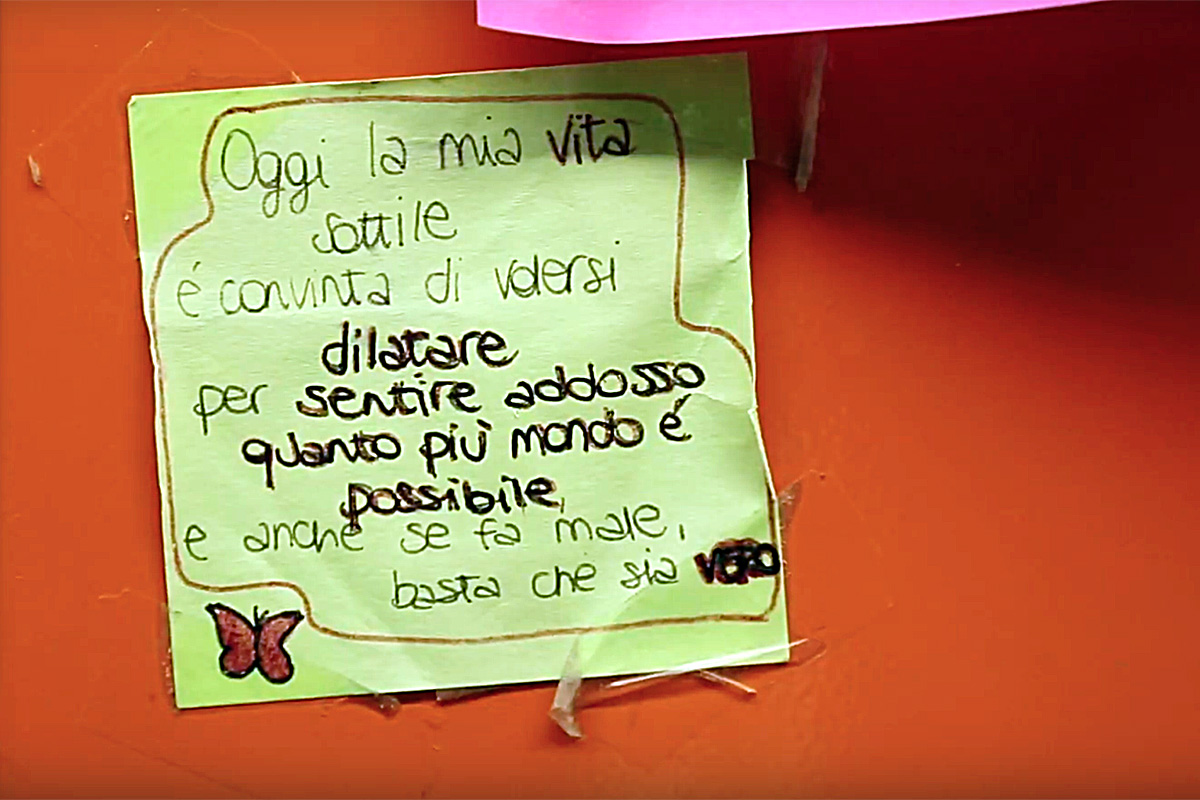 Oggi la mia vita
sottile
é convinta di volersi
dilatare
per sentire addosso
quanto più mondo é
possibile,
e anche se fa male,
basta che sia VERO